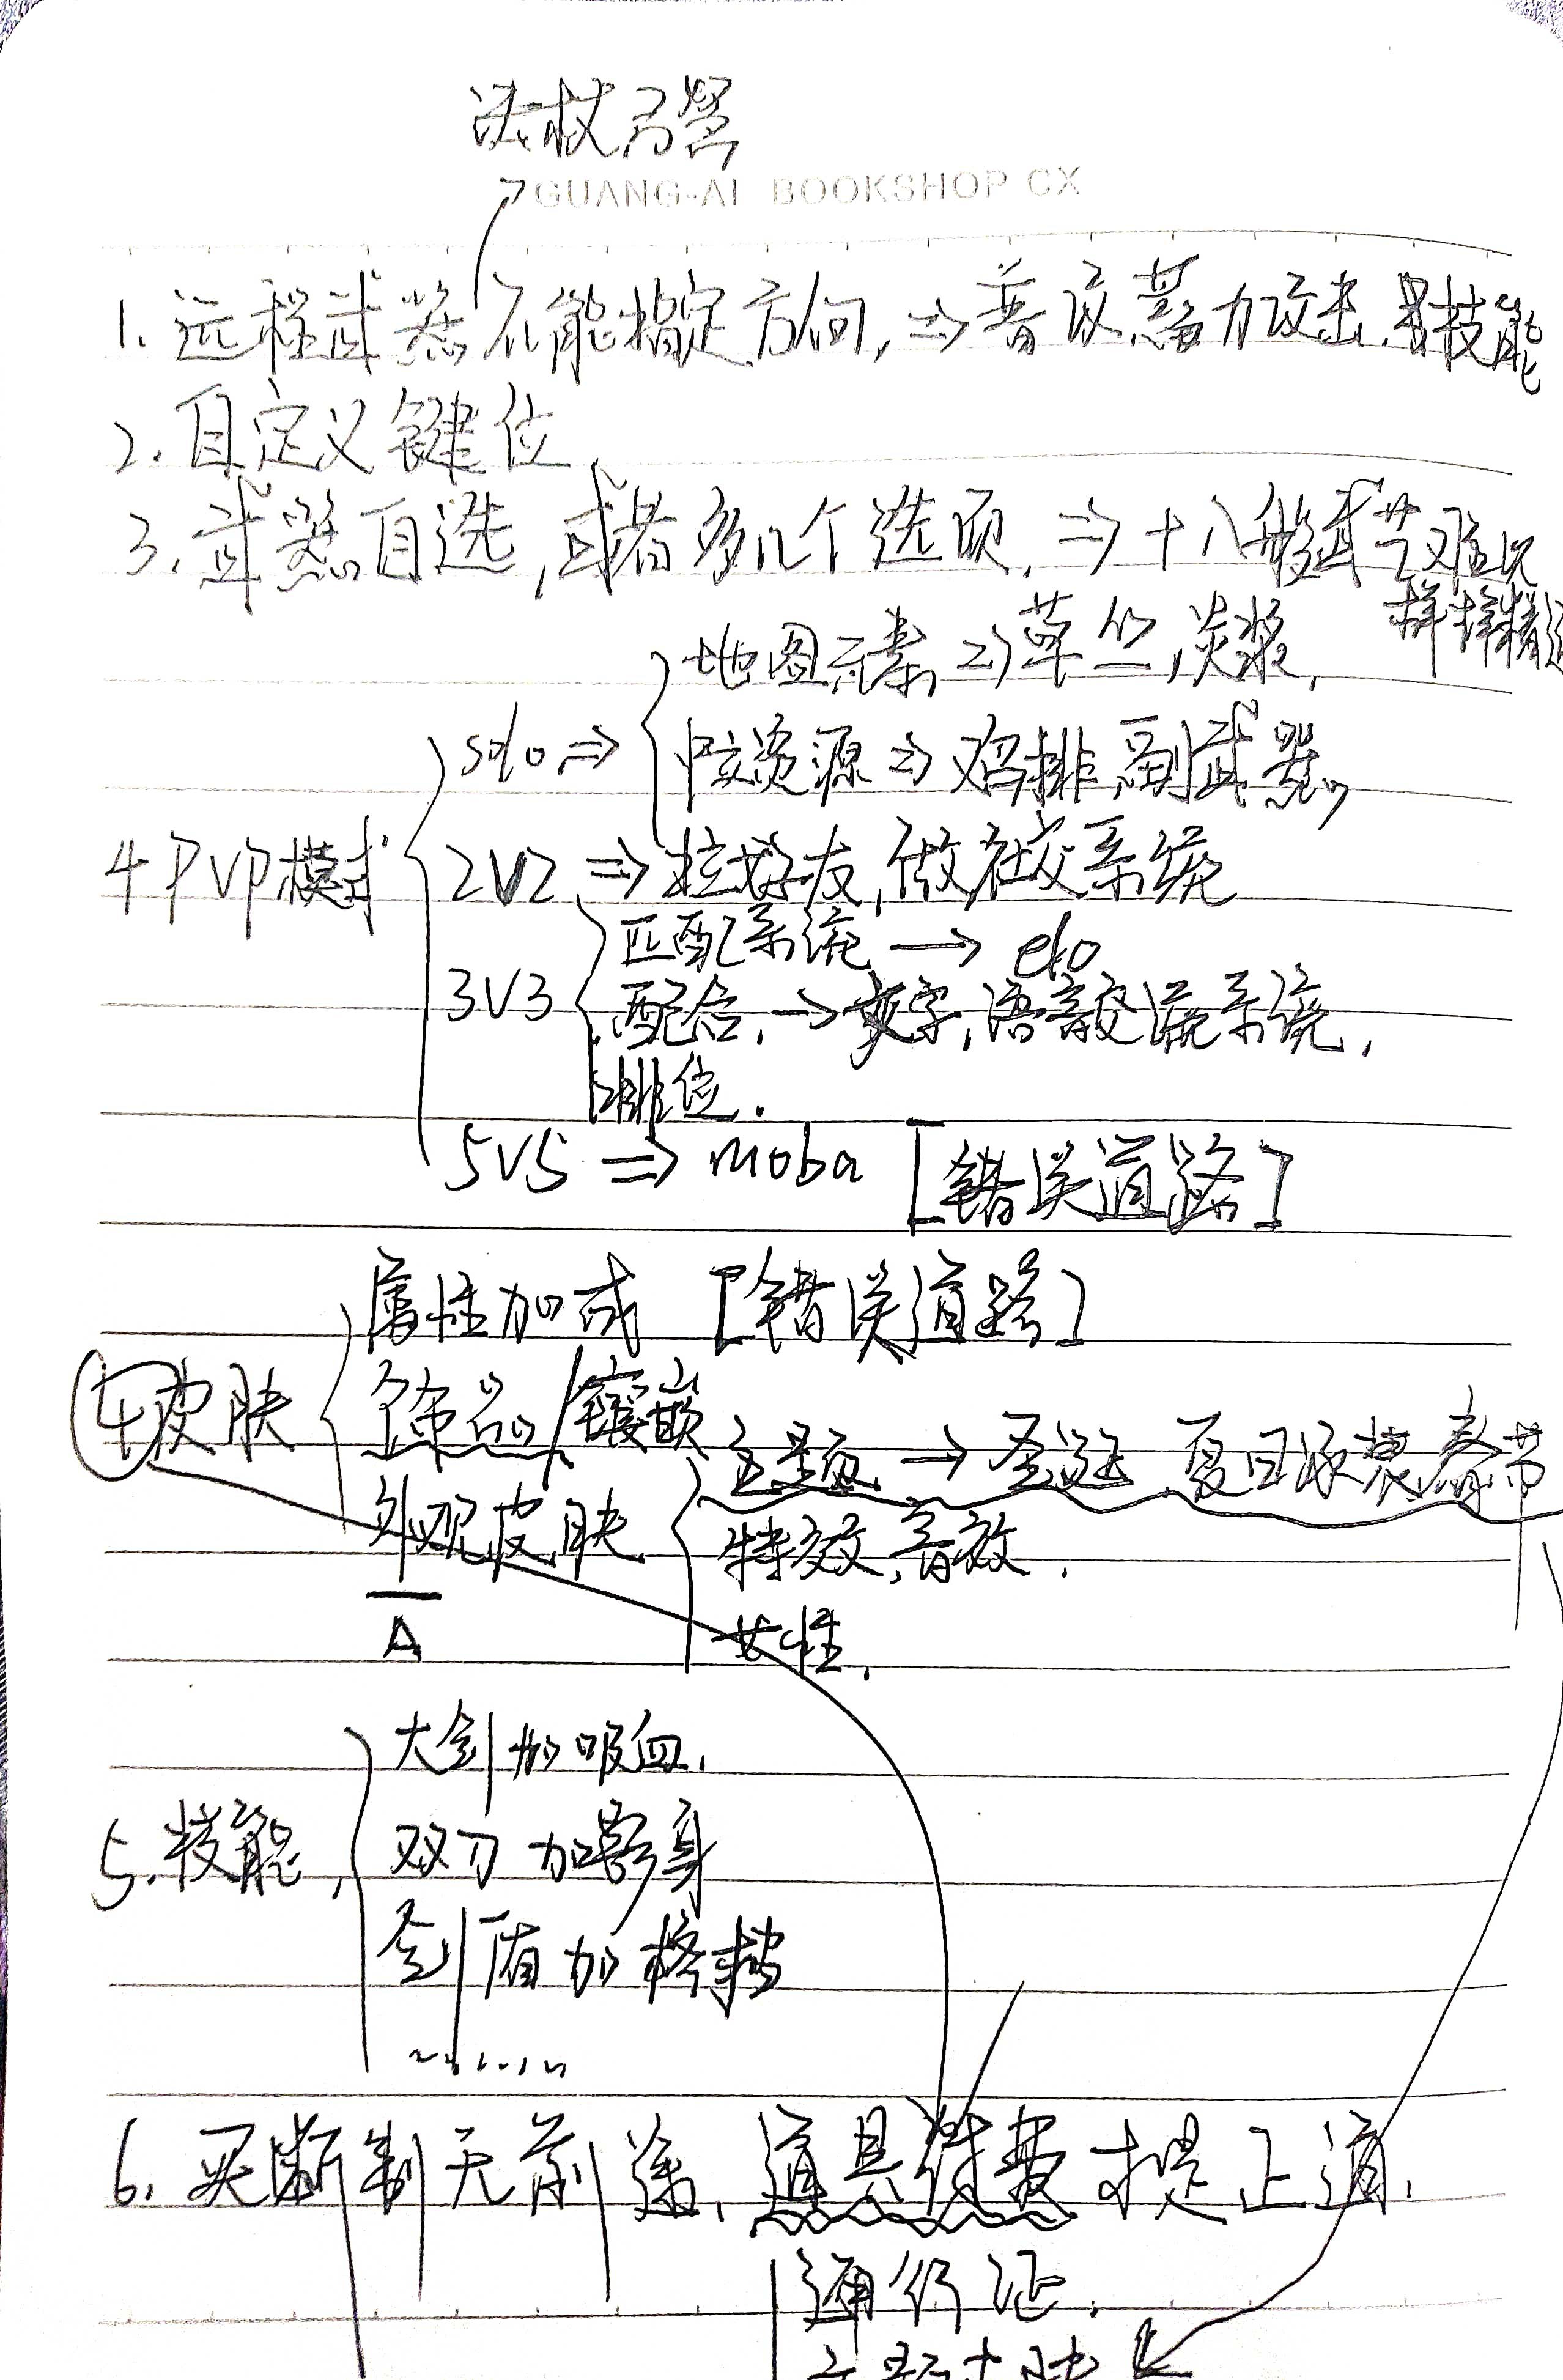 法杖弓弩
GUANG-AI BOOKSHOP CX
1. 远程武器不能指定方向, ⇒ 普攻蓄力攻击 技能
2. 自定义键位,
3. 武器自选, 或者多几个选项, ⇒ 十八般武艺难以
样样精通
地图元素 ⇒ 草丛, 岩浆,
solo ⇒ 中立资源 ⇒ 鸡排, 副武器,
4 PVP模式
2V2 ⇒ 拉好友, 做社交系统
匹配系统 → elo
3V3 配合, → 文字, 语音交流系统,
排位.
5V5 ⇒ moba [错误道路]
属性加成 [错误道路]
4 皮肤
/镶嵌
主题 → 圣诞 夏日泳装 春节
外观皮肤 特效, 音效.
A
女性,
大剑加吸血,
5. 技能, 双刀加影身
剑盾加格挡
......
6. 买断制无前途, 道具付费才是正道.
通行证.